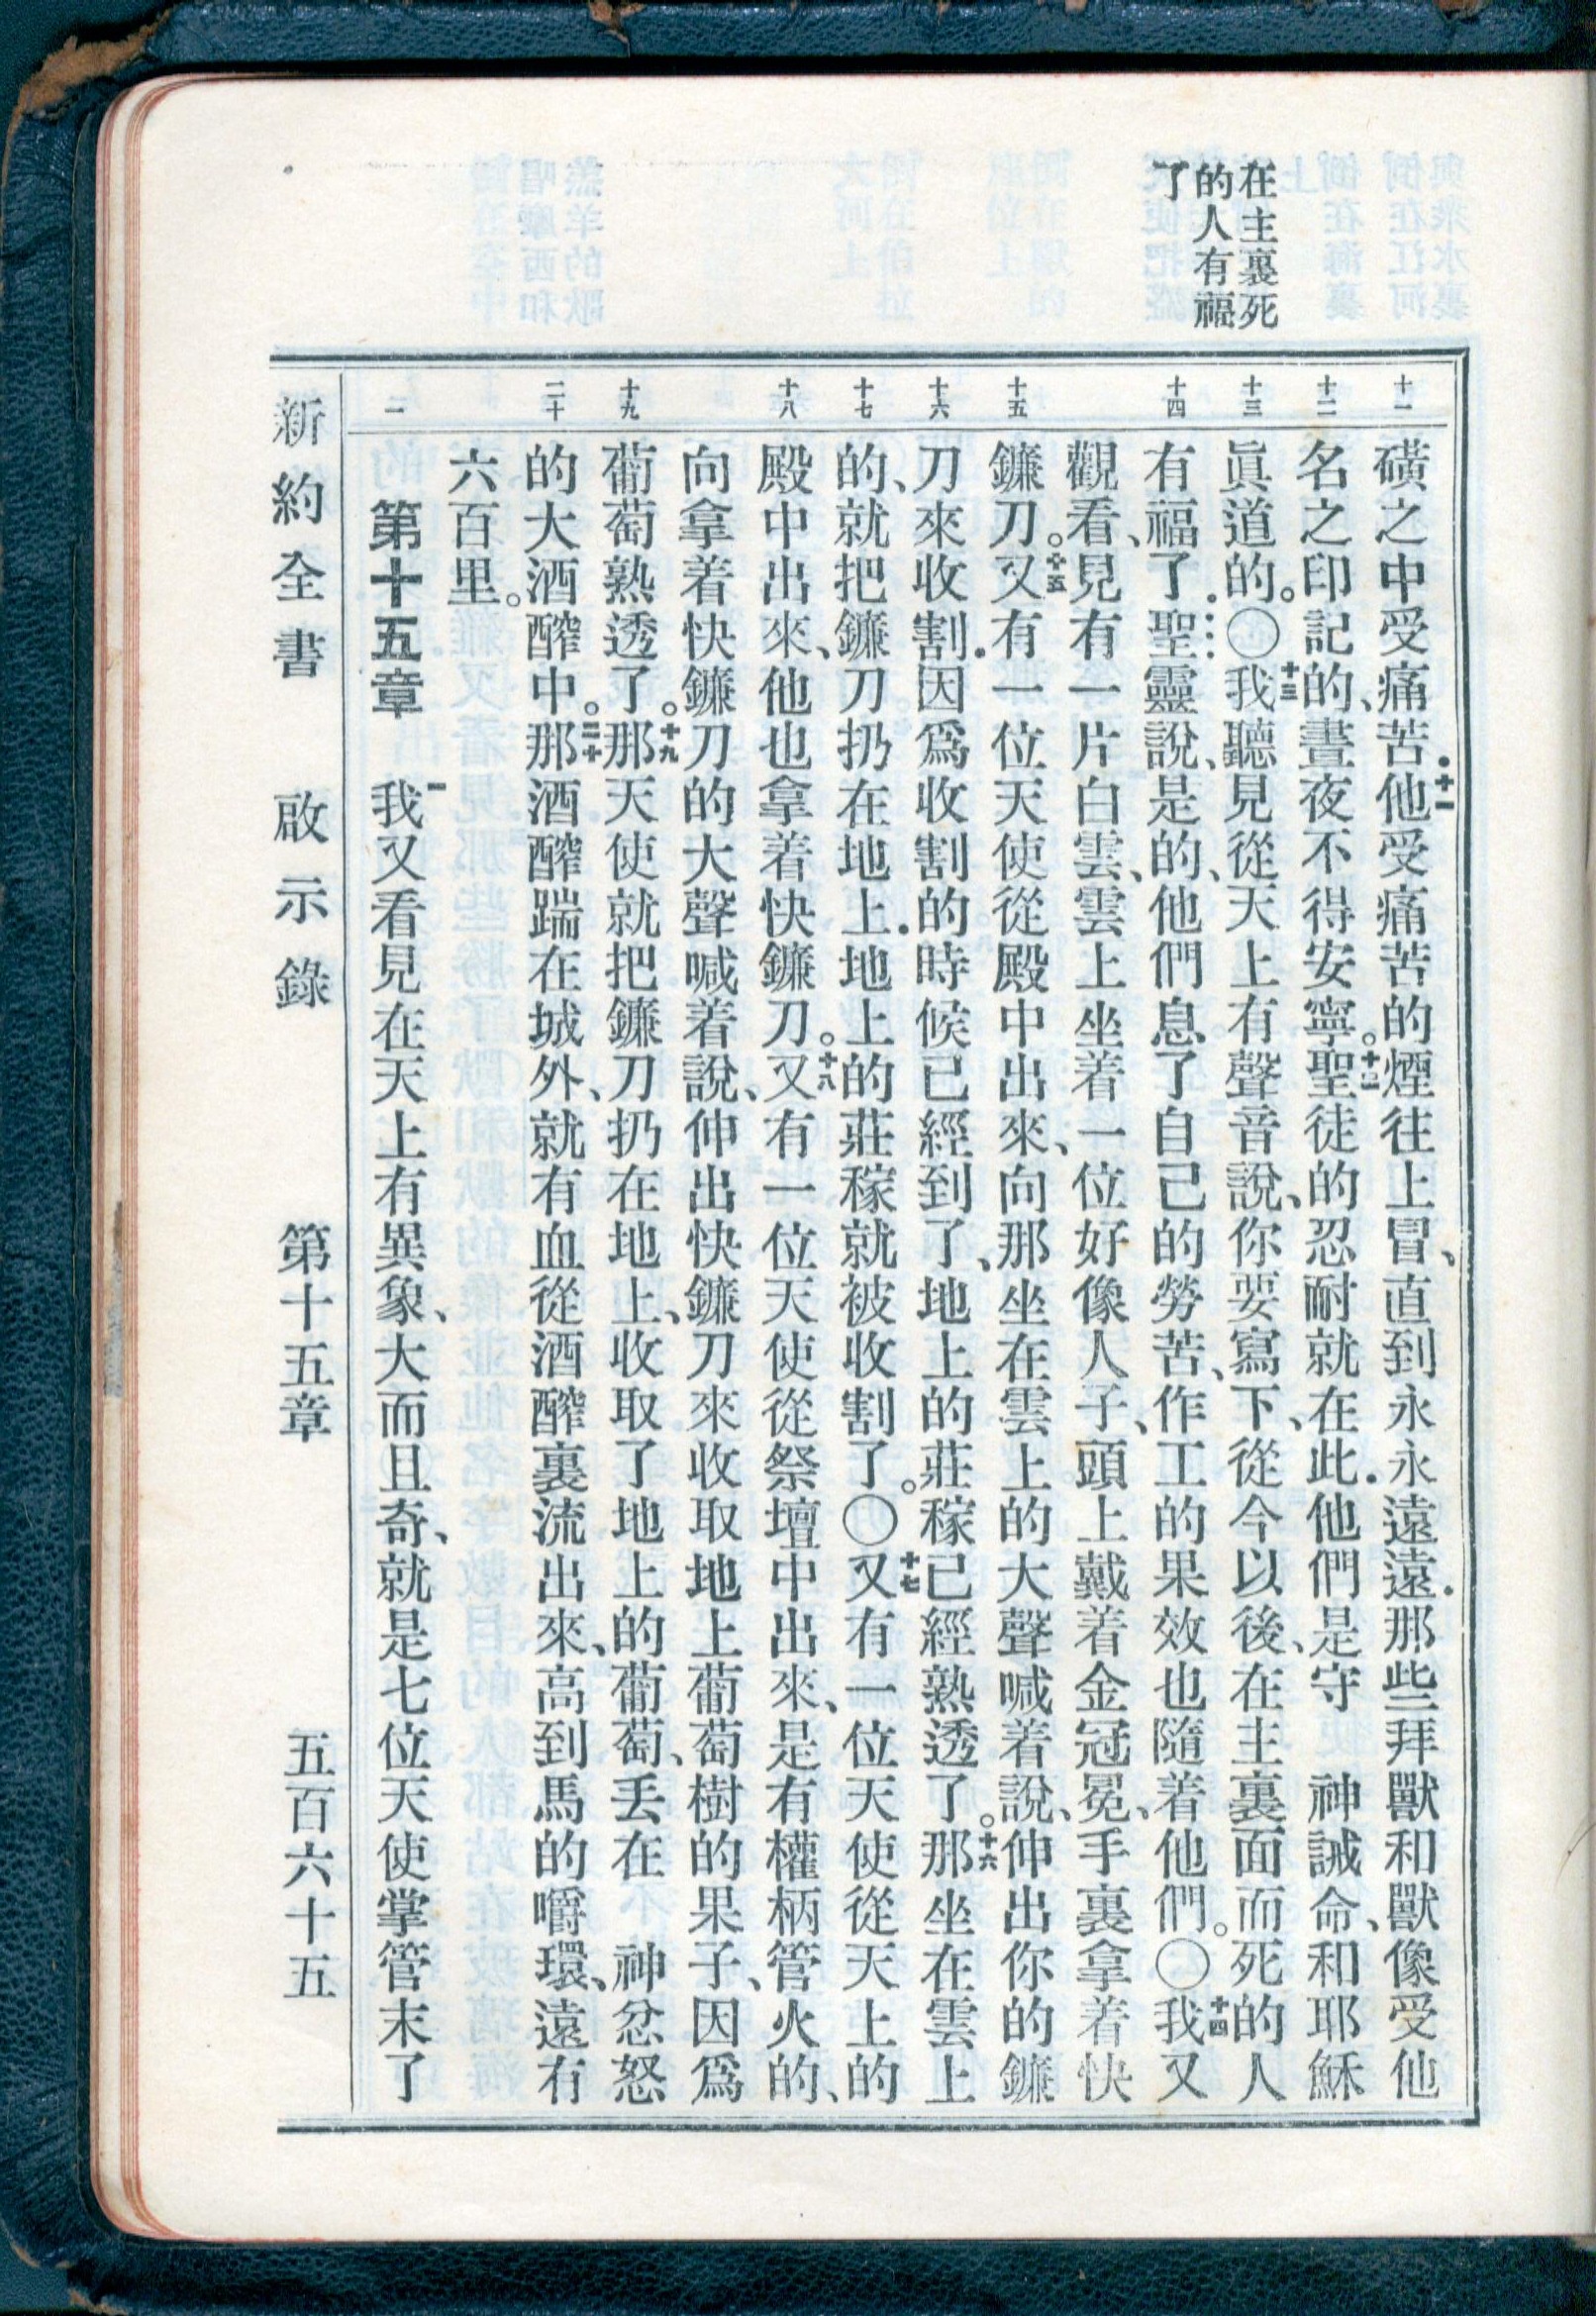 在主裏死
的人有福
了
十一
十二
十三
十四
十五
十六
十七
十八
十九
二十
一
磺之中受痛苦．十一他受痛苦的煙往上冒、直到永永遠遠．那些拜獸和獸像受他
名之印記的、晝夜不得安寧。十二聖徒的忍耐就在此．他們是守　神誡命、和耶穌
眞道的。〇十三我聽見從天上有聲音說、你要寫下、從今以後、在主裏面而死的人
有福了．聖靈說、是的、他們息了自己的勞苦、作工的果效也隨着他們。〇十四我又
觀看、見有一片白雲、雲上坐着一位好像人子、頭上戴着金冠冕、手裏拿着快
鐮刀。十五又有一位天使從殿中出來、向那坐在雲上的大聲喊着說、伸出你的鐮
刀來收割．因爲收割的時候已經到了、地上的莊稼已經熟透了。十六那坐在雲上
的、就把鐮刀扔在地上．地上的莊稼就被收割了。〇十七又有一位天使從天上的
殿中出來、他也拿着快鐮刀。十八又有一位天使從祭壇中出來、是有權柄管火的、
向拿着快鐮刀的大聲喊着說、伸出快鐮刀來收取地上葡萄樹的果子、因爲
葡萄熟透了。十九那天使就把鐮刀扔在地上、收取了地上的葡萄、丢在　神忿怒
的大酒醡中。二十那酒醡踹在城外、就有血從酒醡裏流出來、高到馬的嚼環、遠有
六百里。
第十五章　一我又看見在天上有異象、大而且奇、就是七位天使掌管末了
新約全書　啟示錄　第十五章　五百六十五